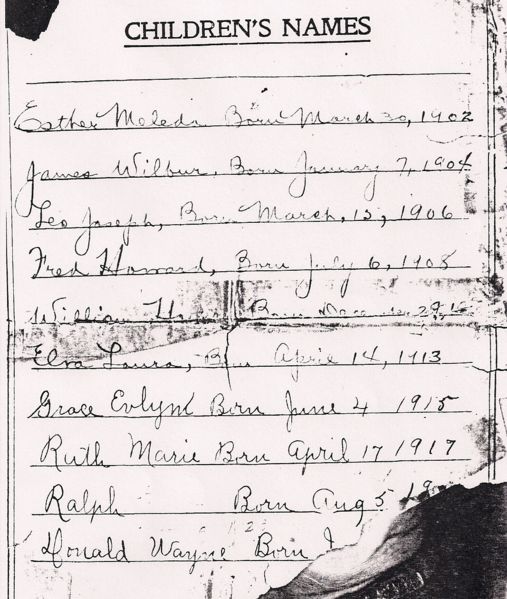 CHILDREN'S NAMES
Esther Meleda Born March 30, 1902
James Wilbur, Born January 7, 1904
Leo Joseph, Born March, 15, 1906
Fred Howard, Born July 6, 1908
William Born 29,
Elva Laura, Born April 14, 1913
Grace Evlynn Born June 4 1915
Ruth Marie Born April 17 1917
Ralph Born Aug 5 19
Donald Wayne Born J